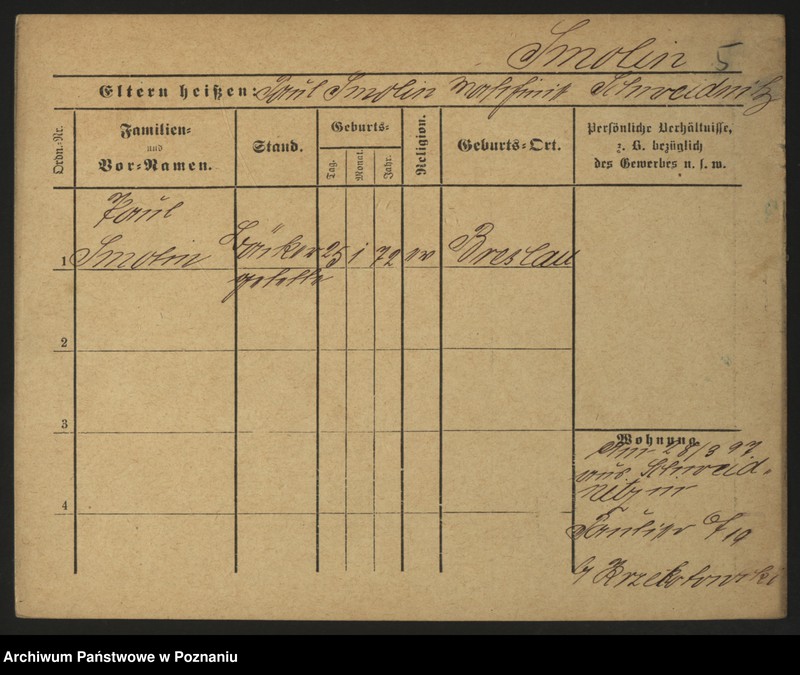 Smolin 5
Eltern heißen: Paul Smolin Schweidnitz
Ordn.-Nr.
Familien- und Vor-Namen.
Stand.
Geburts-
Tag.
Monat.
Jahr.
Religion.
Geburts-Ort.
Persönliche Verhältnisse, z. B. bezüglich des Gewerbes u. s. w.
Paul
1 Smolin Bäcker 25 1 72 ev Breslau
geselle
2
3
4
Wohnung.
Am 28/3 97
aus Schweid-
nitz
19
Krzekotowski
Archiwum Państwowe w Poznaniu